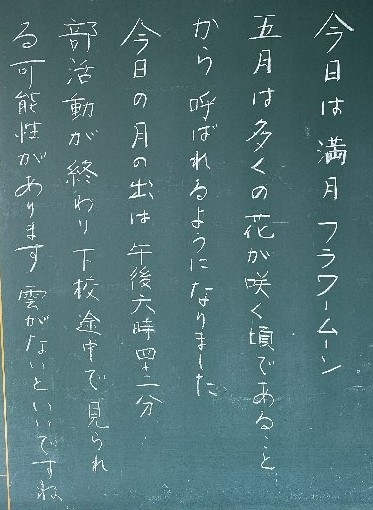 今日は満月 フラワームーン
五月は多くの花が咲く頃であること
から 呼ばれるようになりました
今日の月の出は午後六時四十三分
部活動が終わり下校途中で見られ
る可能性があります 雲がないといいですね